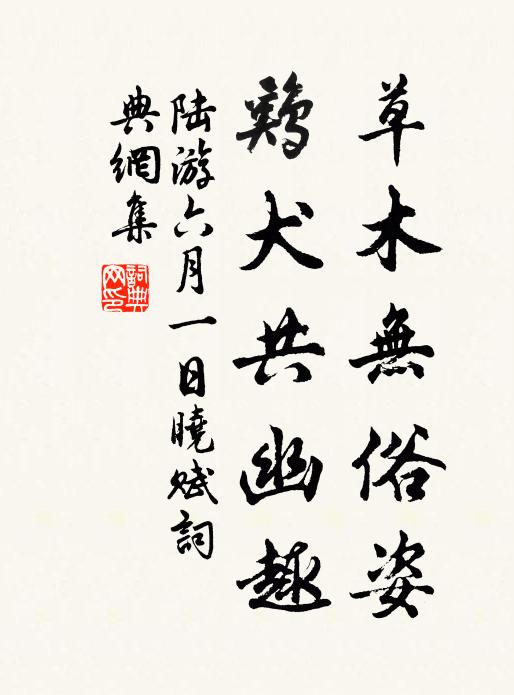 草木無俗姿
鷄犬共幽趣
陆游六月一日曉賦詞
典網集
詞典网印